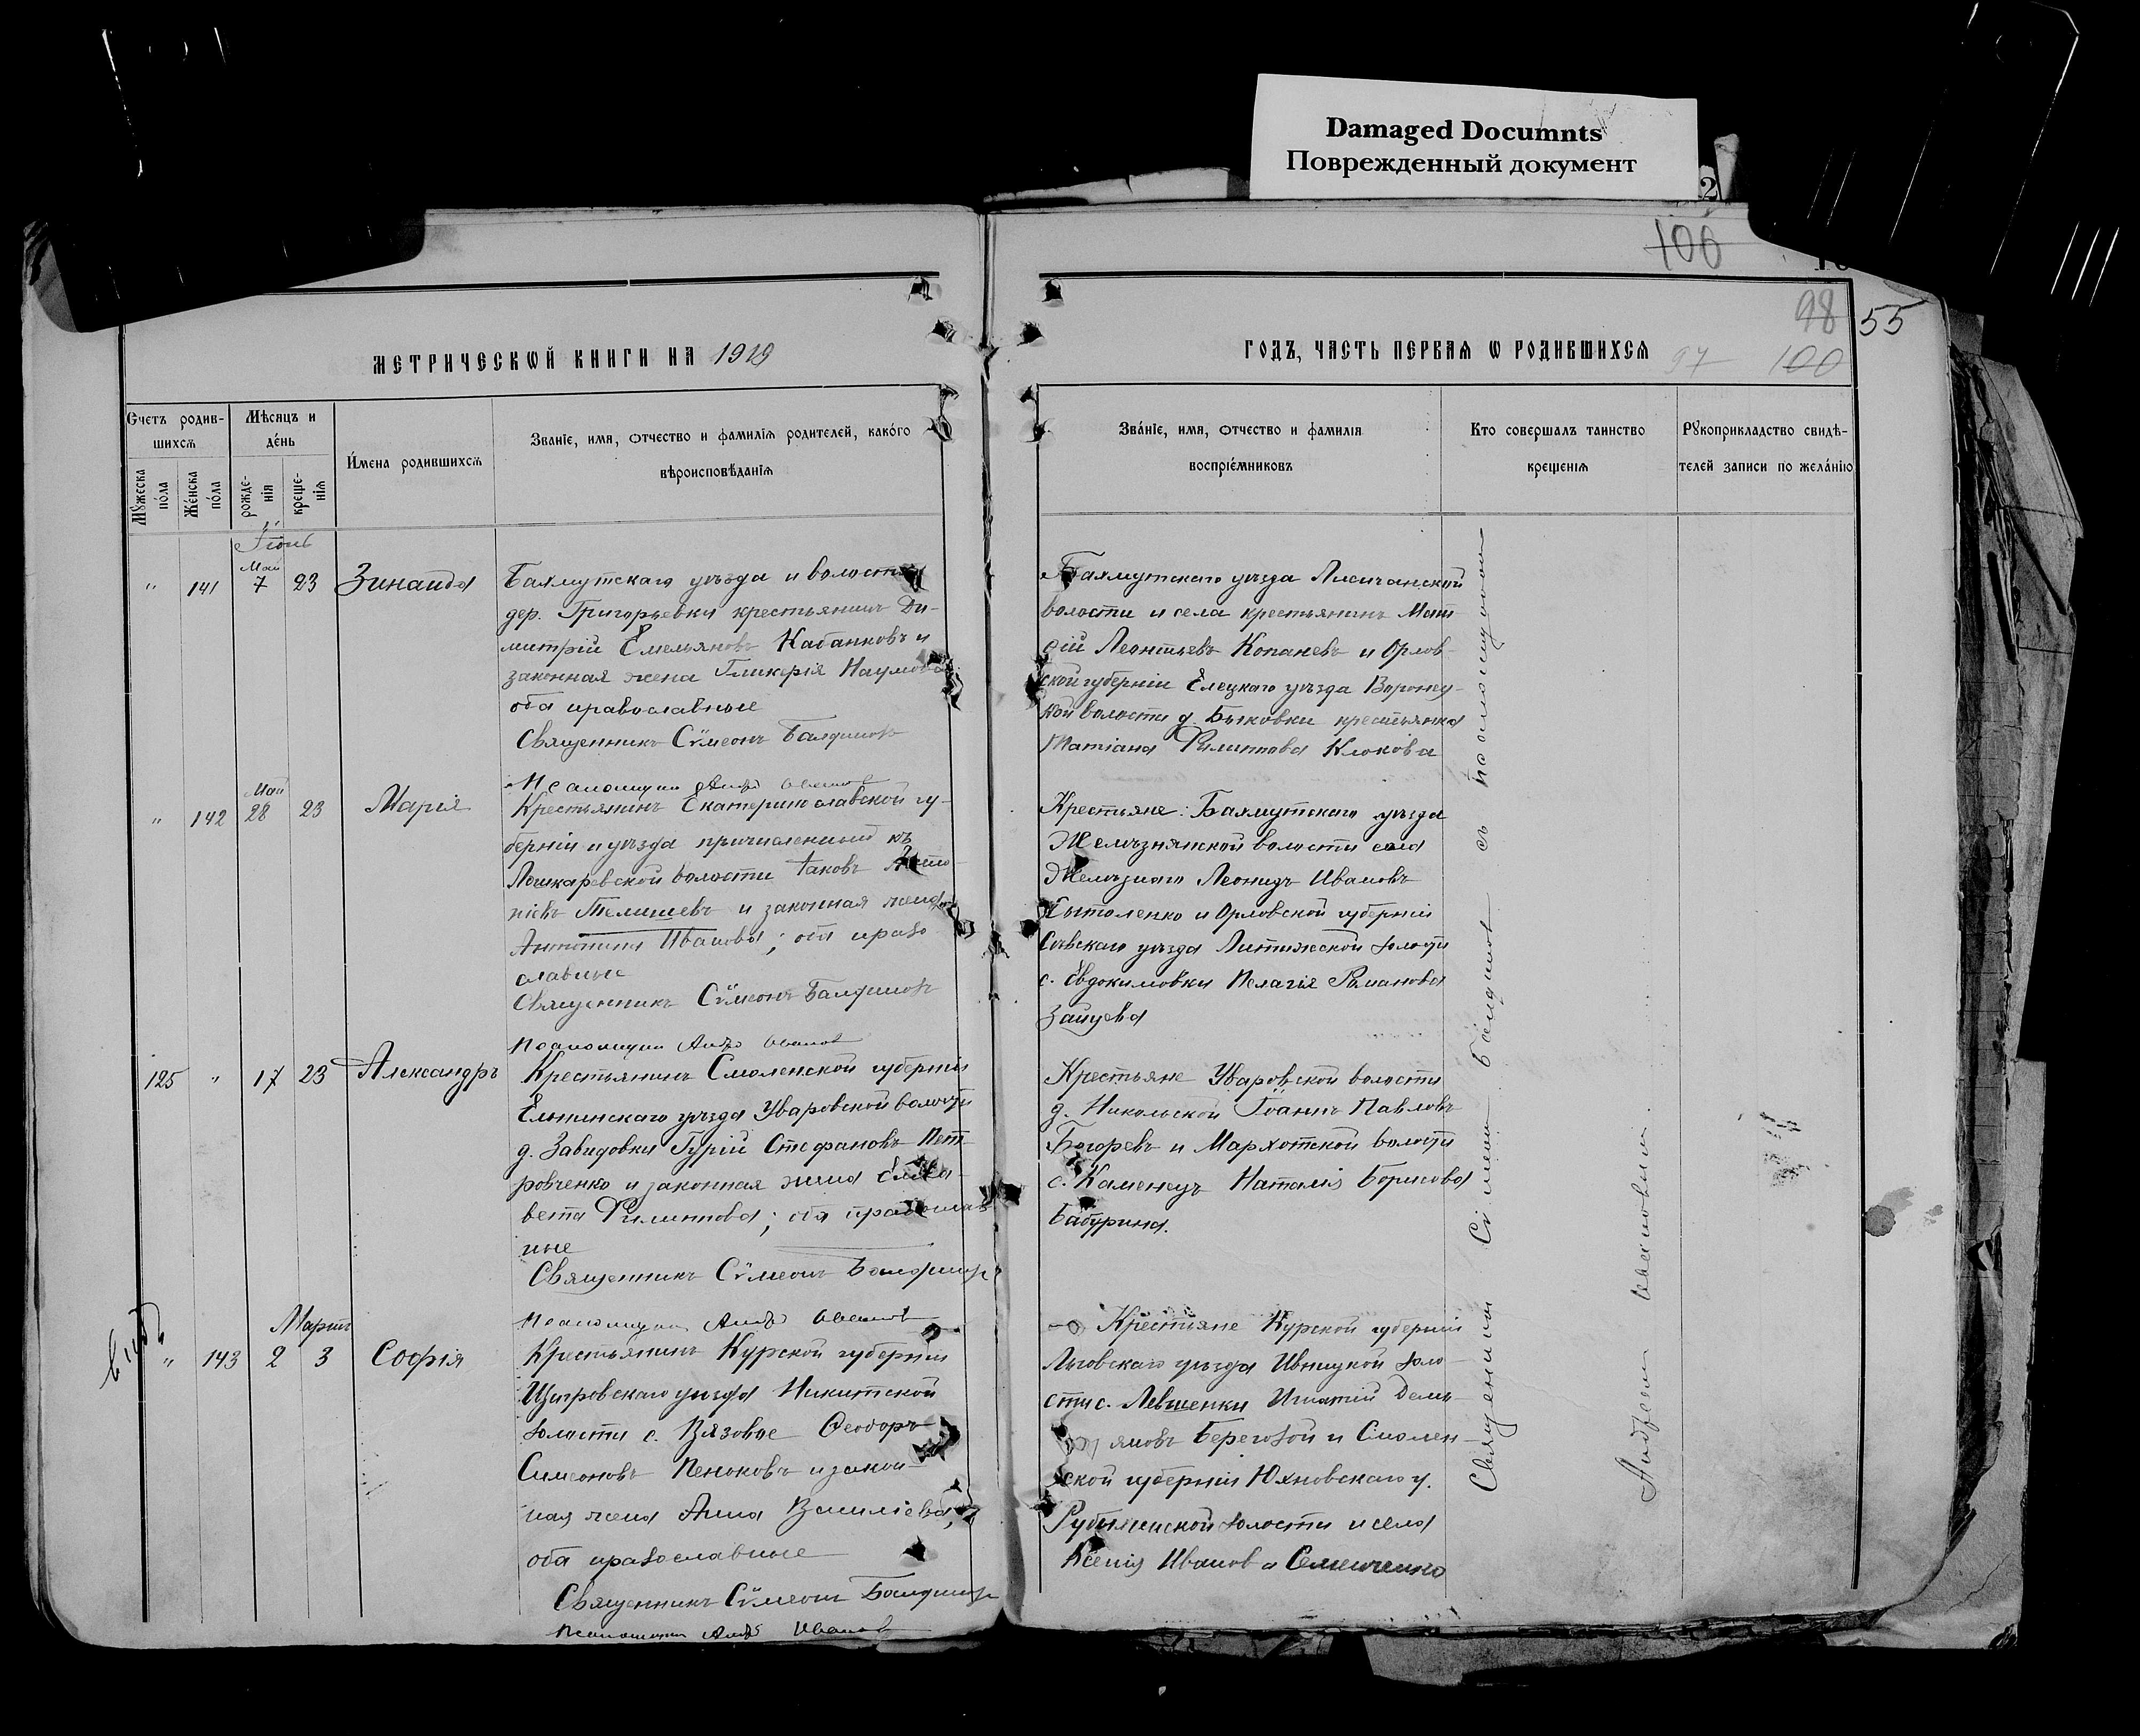 Damaged Documnts
Поврежденный документ
2
100
98
55
97
100
МЕТРИЧЕСКѠЙ КНИГИ НА 1919
ГОДЪ, ЧАСТЬ ПЕРВАѦ Ѡ РОДИВШИХСѦ
Счетъ родив-
шихсѧ
Мѣсяцъ и
де́нь
Мꙋжеска
по́ла
Же́нска
по́ла
рожде-
нія
креще-
нїѧ
И́мена родившихсѧ
Званіе, имя, ѻтчество и фамилїѧ родителей, како́го
вѣроисповѣданїѧ
Зва́нїе, имя, ѻтчество и фамилїя
воспрїе́мниковъ
Кто совершалъ таинство
крещенїѧ
Рꙋкоприкладство свидѣ-
телей записи по жела́нїю
Іюнь
Май
" 141 7 23 Зинаида
Бахмутскаго уѣзда и волости
дер. Григорьевки крестьянинъ Ди-
митрій Емельяновъ Кабанковъ и
законная жена Гликерія Наумова
оба православные
Священникъ Сѵмеонъ
Псаломщикъ
Бахмутскаго уѣзда Лисичанской
волости и села крестьянинъ Мат-
ѳій Леонтьевъ Копаневъ и Орлов-
ской губерніи Елецкаго уѣзда
волости д. Быковки крестьянка
Татіана Филиппова Клокова
Май
" 142 28 23 Марія
Крестьянинъ Екатеринославской гу-
берніи и уѣзда причисленный къ
Лошкаревской волости Іаковъ
Телишевъ и законная жена
Антонина Иванова; оба право
славные
Священникъ Сѵмеонъ
Псаломщикъ
Крестьяне: Бахмутскаго уѣзда
Желѣзнянской волости села
Желѣзнаго Леонидъ Ивановъ
Сытоленко и Орловской губерніи
Сѣвскаго уѣзда Литижской волости
с. Евдокимовки Пелагія Романова
Зайцева
125 " 17 23 Александръ
Крестьянинъ Смоленской губерніи
Ельнинскаго уѣзда Уваровской волости
д. Завидовки Гурій Стефановъ Пет-
ровченко и законная жена Елиса-
вета Филиппова; оба православ
ные
Священникъ Сѵмеонъ
Псаломщикъ
Крестьяне Уваровской волости
д. Никольской Іоаннъ Павловъ
Богоревъ и Мархоткой волости
с. Каменецъ Наталія Борисова
Бабурина.
Мартъ
" 143 2 3 Софія
Крестьянинъ Курской губерніи
Щигровскаго уѣзда Никитской
волости с. Вязовое Ѳеодоръ
Симеоновъ Пеньковъ и закон-
ная жена Анна Василіева,
оба православные
Священникъ Сѵмеонъ
Псаломщикъ
Крестьяне Курской губерніи
Льговскаго уѣзда Ивницкой воло-
сти с. Левшенки Игнатій Демь-
яновъ Береговой и Смолен-
ской губерніи Юхновскаго у.
волости и села
Ксенія Иванова Семенченко
Священникъ Сѵмеонъ съ псаломщикомъ
Андреемъ Ивановымъ.